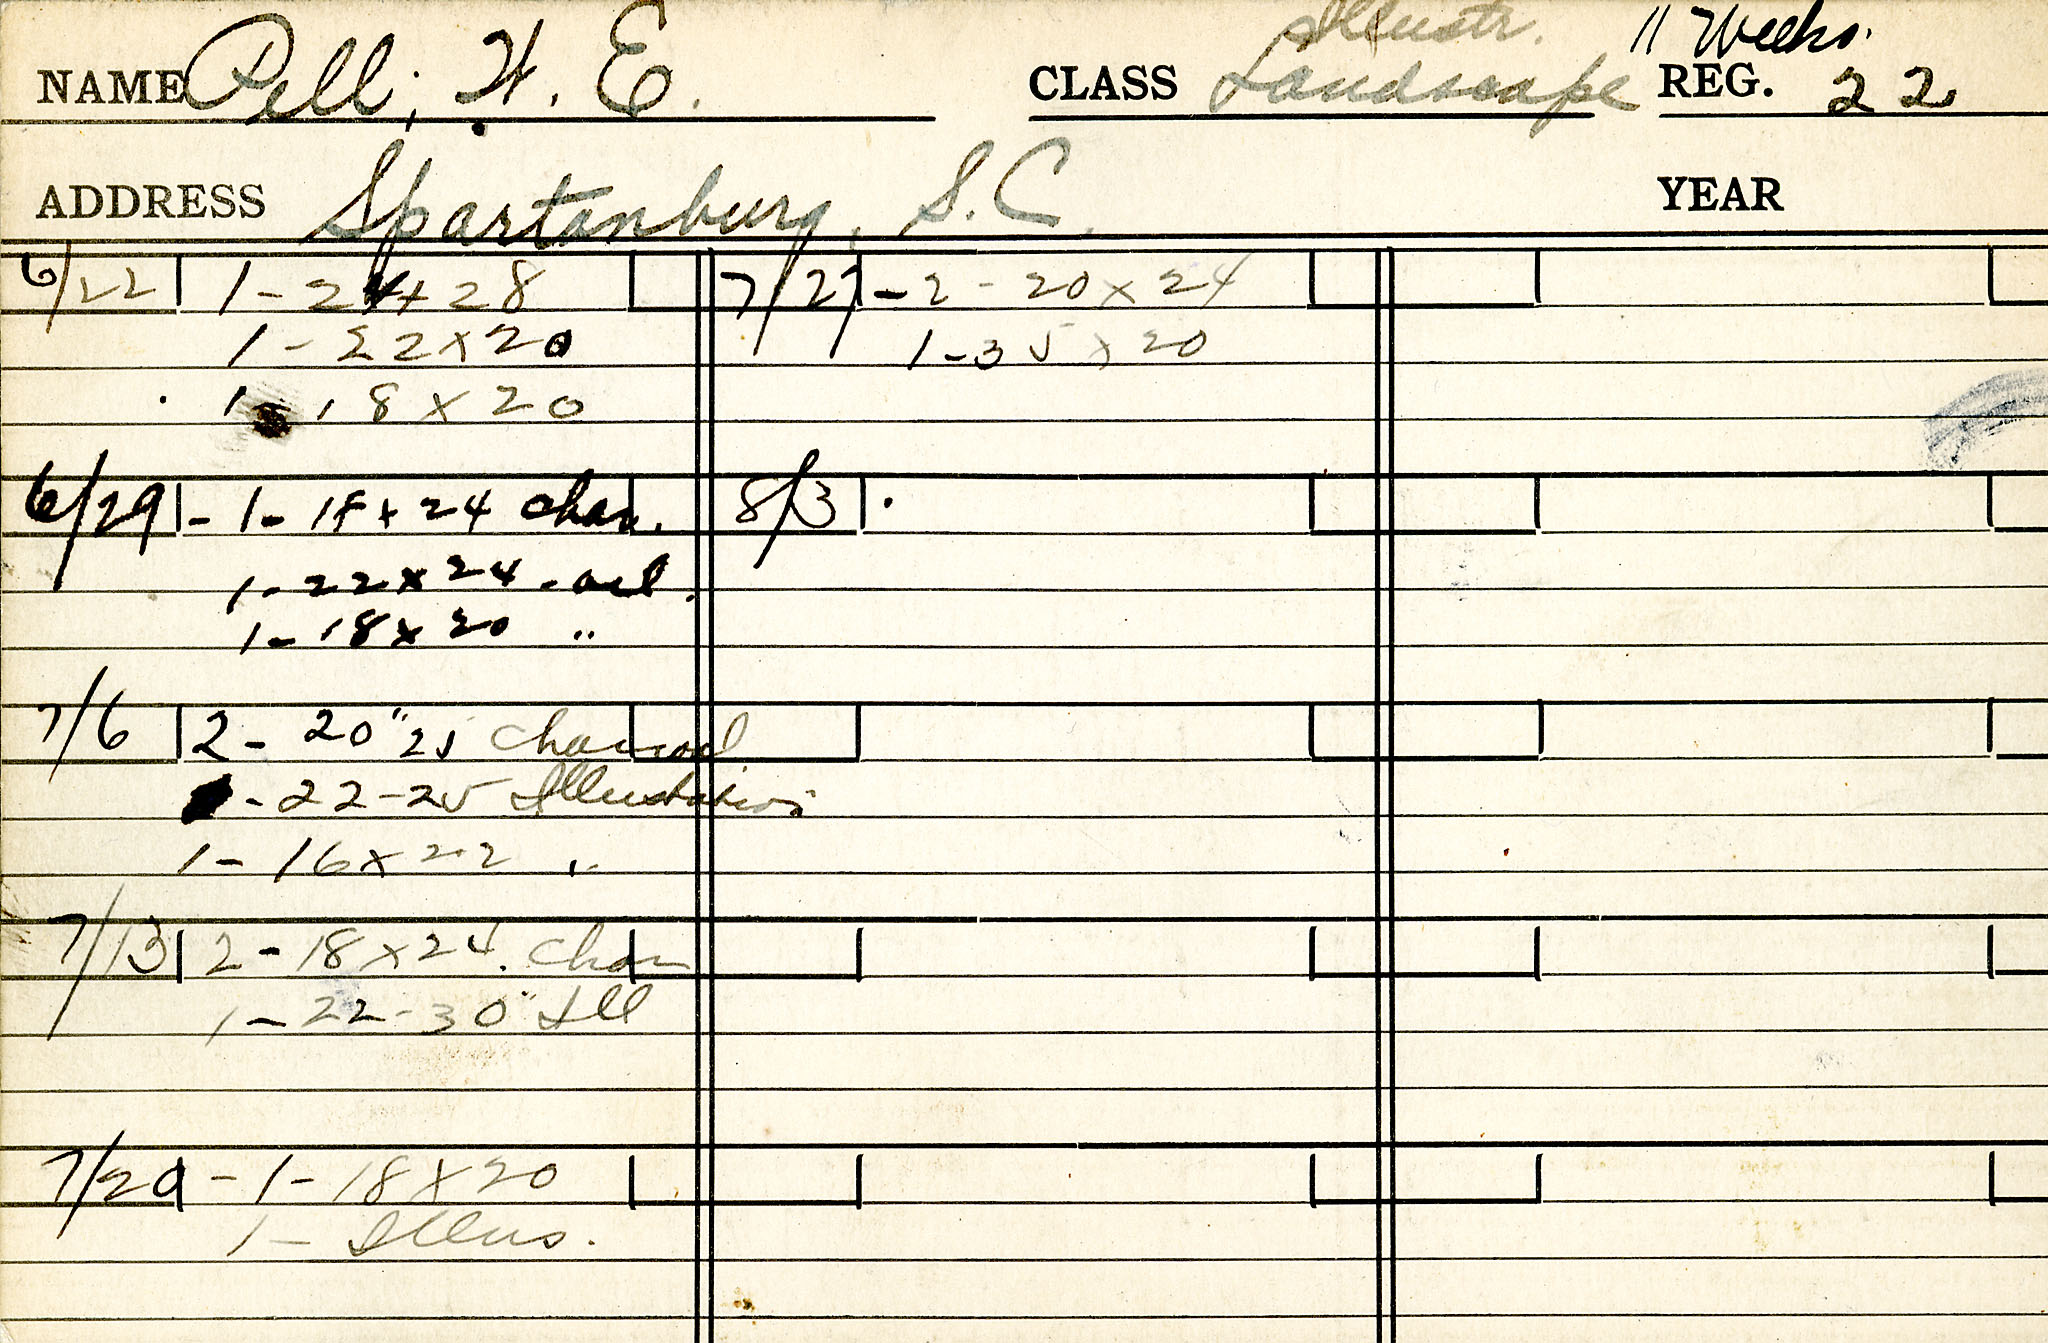 Illustr. 11 Weeks.
NAME Pell, H. E. CLASS Landscape REG. 22
ADDRESS Spartanburg, S.C. YEAR
6/22 1 - 24 x 28
1 - 22 x 20
1 - 18 x 20
6/29 - 1 - 18 x 24 Char.
1 - 22 x 24 - oil.
1 - 18 x 20 "
7/6 2 - 20" 25 Charcoal
- 22 - 25 Illustration
1 - 16 x 22 "
7/13 2 - 18 x 24. Char
1 - 22 - 30" Ill
7/20 - 1 - 18 x 20
1 - Illus.
7/27 - 2 - 20 x 24
1 - 35 x 20
8/3